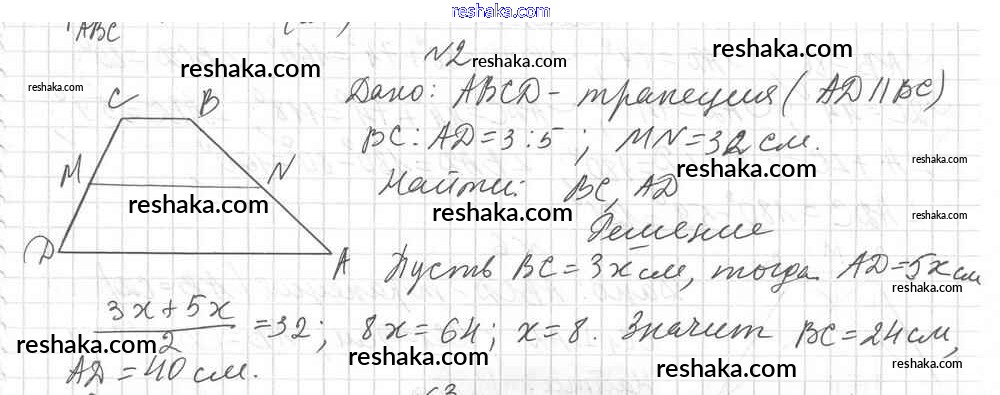 reshaka.com
ABC
N2
reshaka.com
reshaka.com
reshaka.com
C B
Дано: ABCD - трапеция (AD || BC)
BC : AD = 3 : 5 ; MN = 32 см.
reshaka.com
reshaka.com
M N
Найти: BC, AD
reshaka.com
reshaka.com
reshaka.com
Решение
D A
Пусть BC = 3x см, тогда AD = 5x см
reshaka.com
(3x + 5x)/2 = 32; 8x = 64; x = 8. Значит BC = 24 см,
reshaka.com
reshaka.com
reshaka.com
AD = 40 см.
reshaka.com